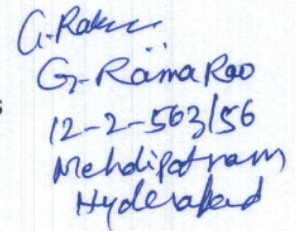 G. Rama Rao
12-2-563/56
Mehdipatnam
Hyderabad